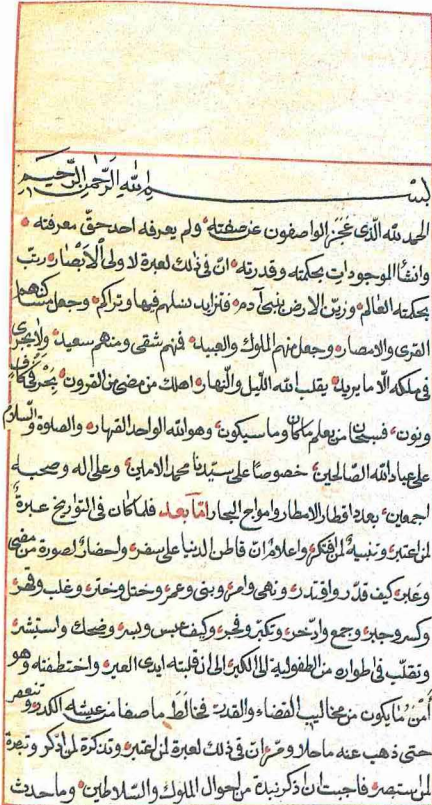 بسم الله الرحمن الرحيم
الحمد لله الذى عجز الواصفون عن صفته ولم يعرفه احد حق معرفته
وانشأ الموجودات بحكمته وقدرته ان فى ذلك لعبرة لاولى الابصار رتب
بحكمته العالم وزين الارض ببنى آدم فتزايد نسلهم فيها وتراكم وجعل مساكنهم
القرى والامصار وجعل منهم الملوك والعبيد فمنهم شقى ومنهم سعيد ولا يجرى
فى ملكه الا ما يريد يقلب الله الليل والنهار اهلك من مضى من القرون بحرفى كاف
ونون فسبحان من يعلم ما كان وما سيكون وهو الله الواحد القهار والصلوة والسلام
على عباد الله الصالحين خصوصا على سيدنا محمد الامين وعلى اله وصحبه
اجمعين بعدد اقطار الامطار وامواج البحار اما بعد فلما كان فى التواريخ عبرة
لمن اعتبر وتنبيه لمن افتكر واعلام ان قاطن الدنيا على سفر واحضار لصورة من مضى
وغبر كيف قدر واقتدر ونهى وامر وبنى وعمر وختل وختر وغلب وقهر
وكسر وجبر وجمع وادخر وتكبر وفجر وكيف عبس وبسر وضحك واستبشر
وتقلب فى اطواره من الطفولية الى الكبر الى ان قلبته ايدى العبر واختطفته وهو
آمن ما يكون من مخاليب القضاء والقدر فخالط ما صفا من عيشه الكدر وتنغص
حتى ذهب عنه ما حلا ومر ان فى ذلك لعبرة لمن اعتبر وتذكرة لمن اذكر وتبصرة
لمن استبصر فاحببت ان اذكر نبذة من احوال الملوك والسلاطين وما حدث